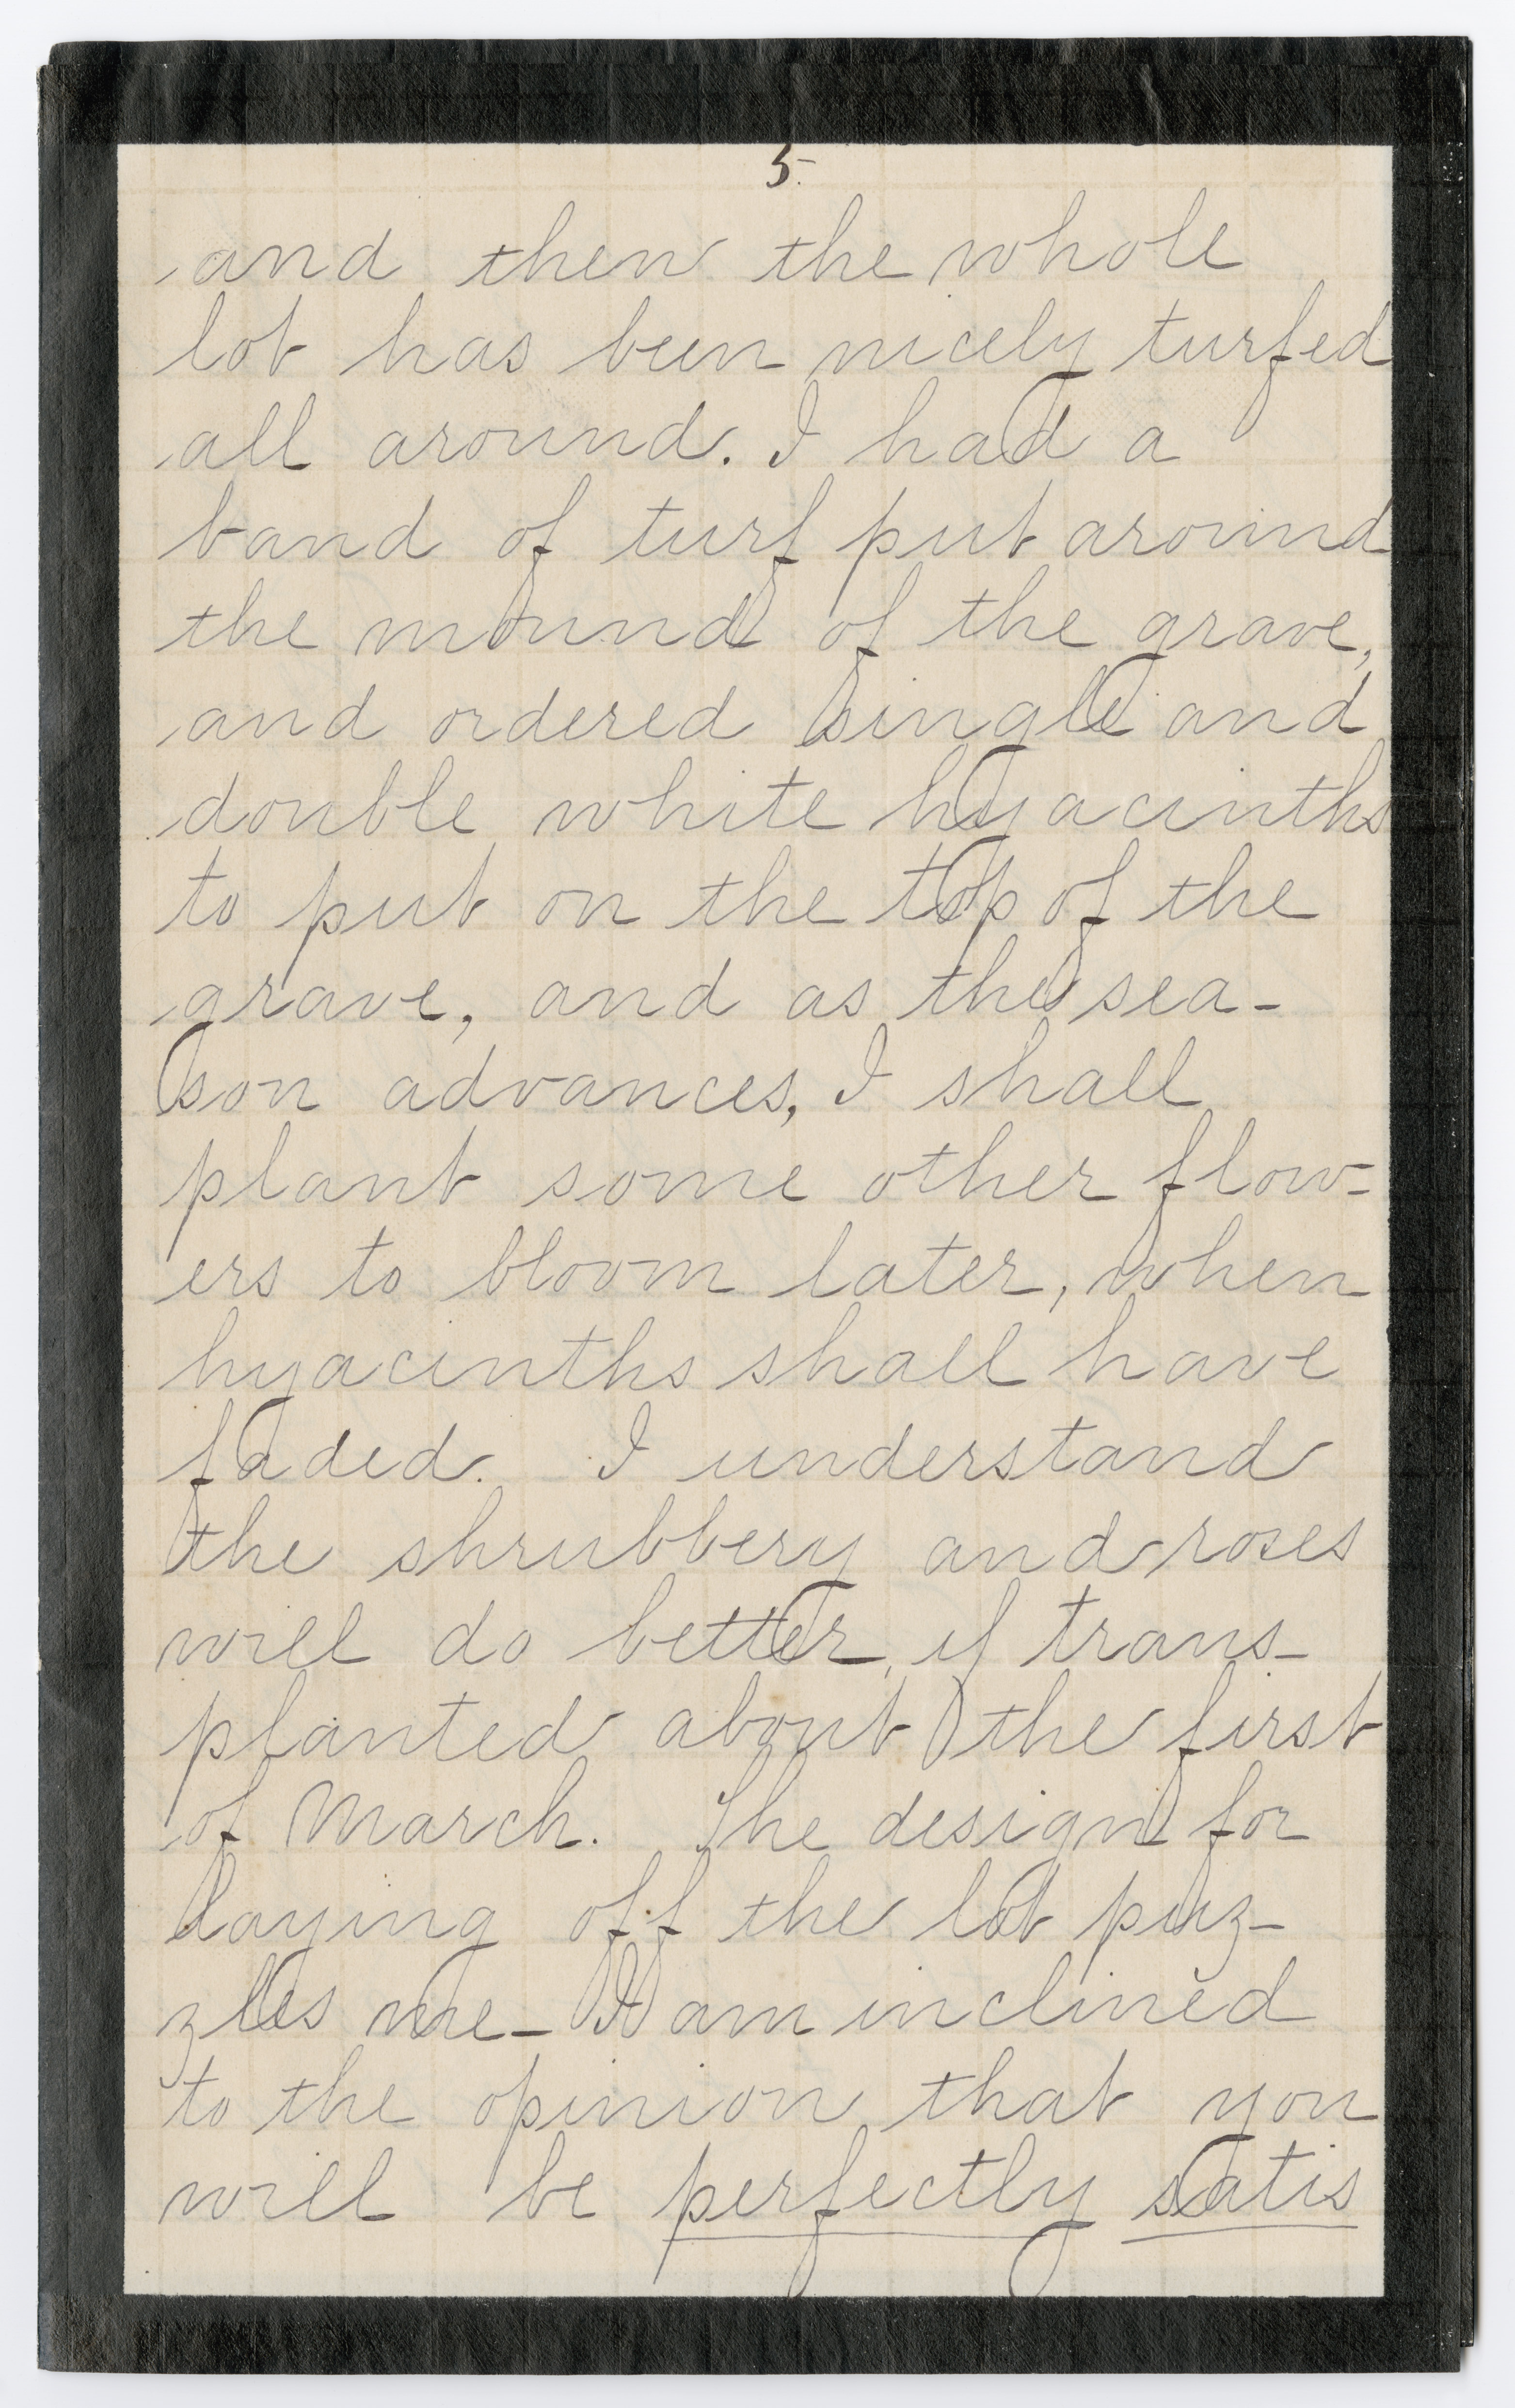 5.
and then the whole
lot has been nicely turfed
all around. I had a
band of turf put around
the mound of the grave,
and ordered single and
double white hyacinths
to put on the top of the
grave, and as the sea-
son advances, I shall
plant some other flow-
ers to bloom later, when
hyacinths shall have
faded. I understand
the shrubbery and roses
will do better, if trans-
planted about the first
of March. The design for
laying off the lot puz-
zles me - I am inclined
to the opinion that you
will be perfectly satis